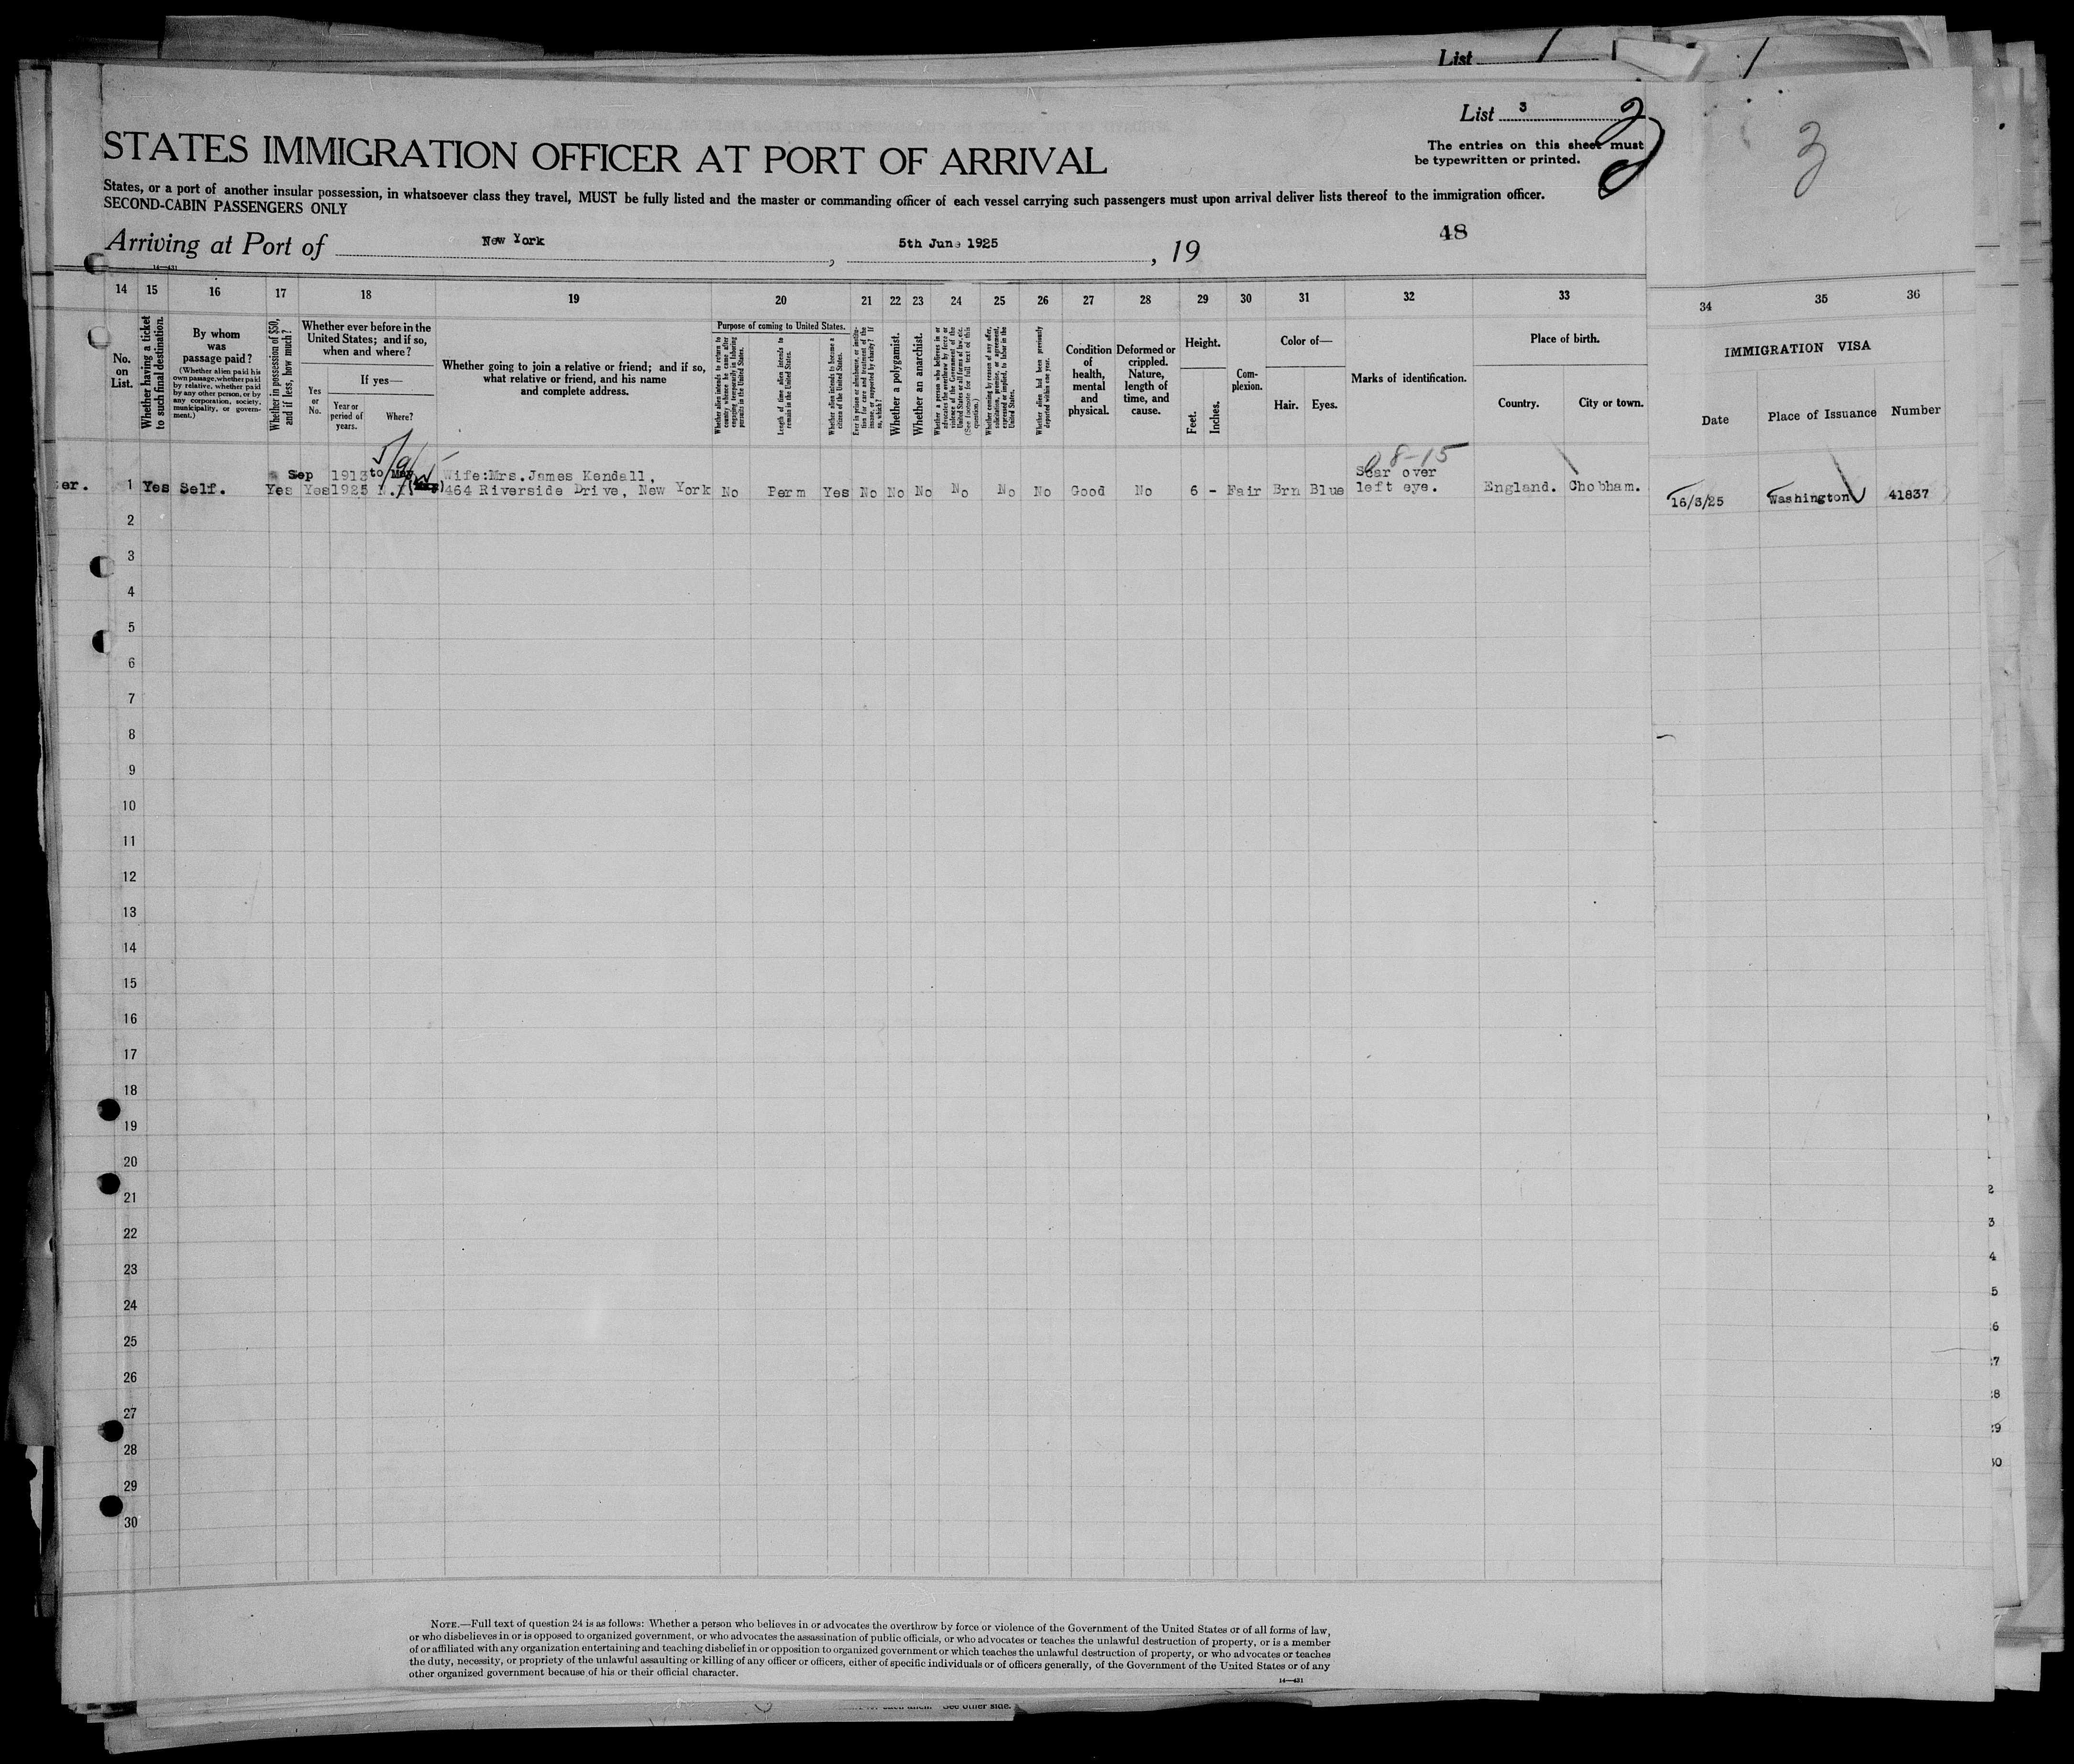 List 1
List 3
2
3
STATES IMMIGRATION OFFICER AT PORT OF ARRIVAL
The entries on this sheet must
be typewritten or printed.
States, or a port of another insular possession, in whatsoever class they travel, MUST be fully listed and the master or commanding officer of each vessel carrying such passengers must upon arrival deliver lists thereof to the immigration officer.
SECOND-CABIN PASSENGERS ONLY
Arriving at Port of New York, 5th June 1925, 19
48
14—431
14 15 16 17 18 19 20 21 22 23 24 25 26 27 28 29 30 31 32 33 34 35 36
No. on List.
Whether having a ticket to such final destination.
By whom was passage paid?
(Whether alien paid his own passage, whether paid by relative, whether paid by any other person, or by any corporation, society, municipality, or government.)
Whether in possession of $50, and if less, how much?
Whether ever before in the United States; and if so, when and where?
Yes or No.
If yes—
Year or period of years.
Where?
Whether going to join a relative or friend; and if so, what relative or friend, and his name and complete address.
Purpose of coming to United States.
Whether alien intends to return to country whence he came after engaging temporarily in laboring pursuits in the United States.
Length of time alien intends to remain in the United States.
Whether alien intends to become a citizen of the United States.
Ever in prison or almshouse, or institution for care and treatment of the insane, or supported by charity? If so, which?
Whether a polygamist.
Whether an anarchist.
Whether a person who believes in or advocates the overthrow by force or violence of the Government of the United States or all forms of law, etc. (See footnote for full text of this question.)
Whether coming by reason of any offer, solicitation, promise, or agreement, expressed or implied, to labor in the United States.
Whether alien had been previously deported within one year.
Condition of health, mental and physical.
Deformed or crippled. Nature, length of time, and cause.
Height.
Feet.
Inches.
Complexion.
Color of—
Hair.
Eyes.
Marks of identification.
Place of birth.
Country.
City or town.
IMMIGRATION VISA
Date
Place of Issuance
Number
5/9/
08-15
Sep 1913 to May Wife:Mrs.James Kendall, Scar over
er. 1 Yes Self. Yes Yes 1925 N.Y. 464 Riverside Drive, New York No Perm Yes No No No No No No Good No 6 - Fair Brn Blue left eye. England. Chobham. 16/3/25 Washington 41837
2
3
4
5
6
7
8
9
10
11
12
13
14
15
16
17
18
19
20
21
22
23
24
25
26
27
28
29
30
NOTE.—Full text of question 24 is as follows: Whether a person who believes in or advocates the overthrow by force or violence of the Government of the United States or of all forms of law,
or who disbelieves in or is opposed to organized government, or who advocates the assassination of public officials, or who advocates or teaches the unlawful destruction of property, or is a member
of or affiliated with any organization entertaining and teaching disbelief in or opposition to organized government or which teaches the unlawful destruction of property, or who advocates or teaches
the duty, necessity, or propriety of the unlawful assaulting or killing of any officer or officers, either of specific individuals or of officers generally, of the Government of the United States or of any
other organized government because of his or their official character.
14—431
See other side.